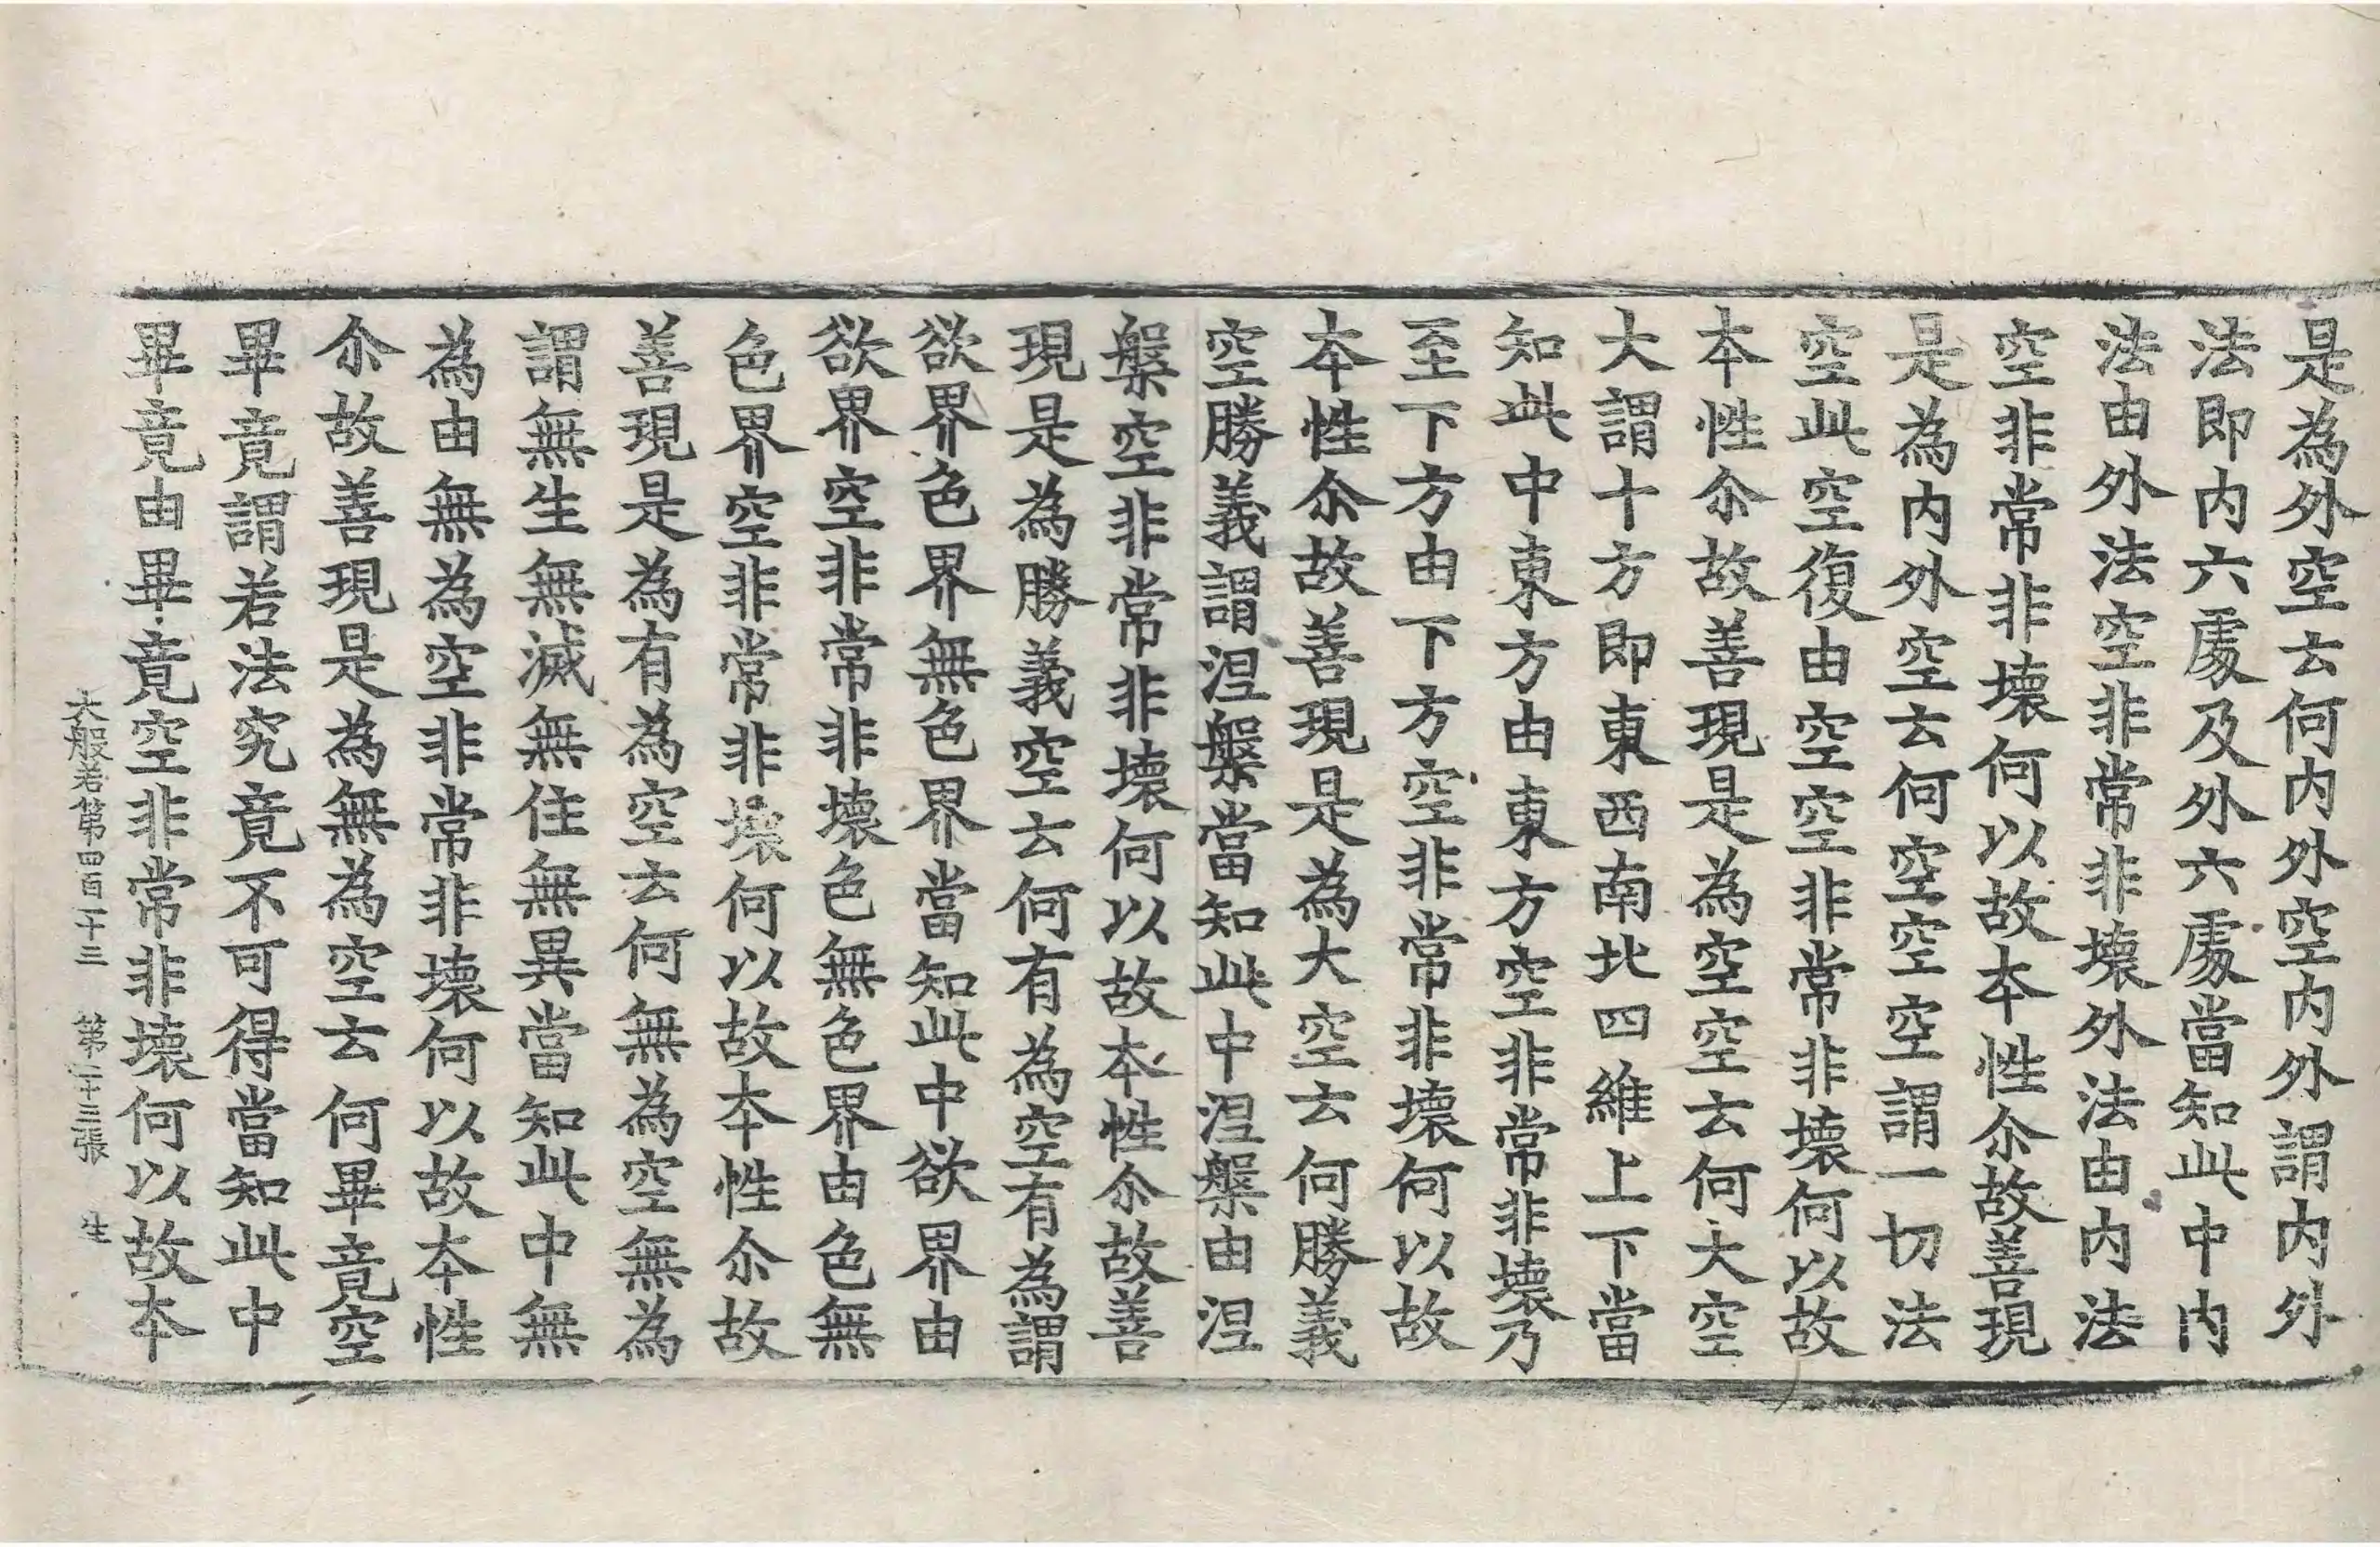 是為外空云何内外空内外謂内外
法即内六䖏及外六䖏當知此中内
法由外法空非常非壊外法由内法
空非常非壊何以故本性尒故善現
是為内外空云何空空空謂一切法
空此空復由空空非常非壊何以故
本性尒故善現是為空空云何大空
大謂十方即東西南北四維上下當
知此中東方由東方空非常非壊乃
至下方由下方空非常非壊何以故
本性尒故善現是為大空云何勝義
空勝義謂涅槃當知此中涅槃由涅
槃空非常非壊何以故本性尒故善
現是為勝義空云何有為空有為謂
欲界色界無色界當知此中欲界由
欲界空非常非壊色無色界由色無
色界空非常非壊何以故本性尒故
善現是為有為空云何無為空無為
謂無生無滅無住無異當知此中無
為由無為空非常非壊何以故本性
尒故善現是為無為空云何畢竟空
畢竟謂若法究竟不可得當知此中
畢竟由畢竟空非常非壊何以故本
大般若第四百一十三 第二十三張 生